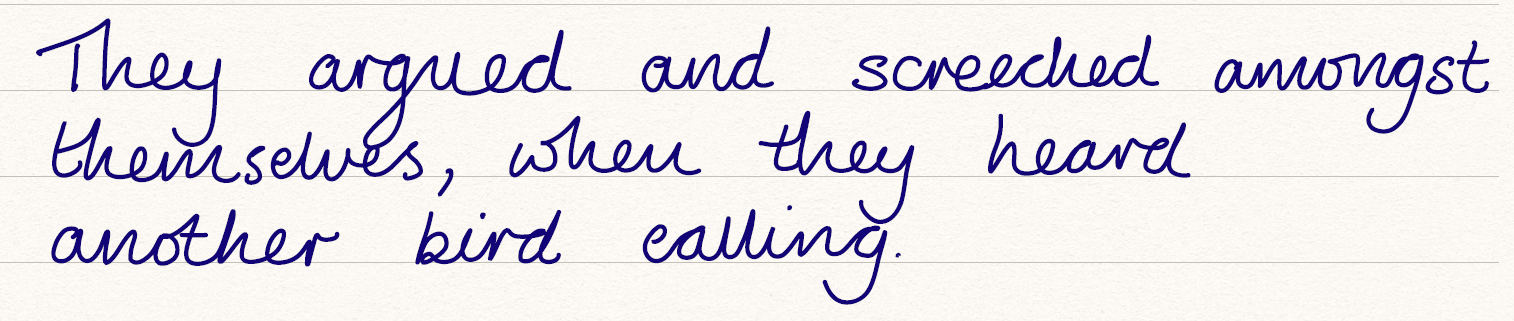 They argued and screeched amongst
themselves, when they heard
another bird calling.